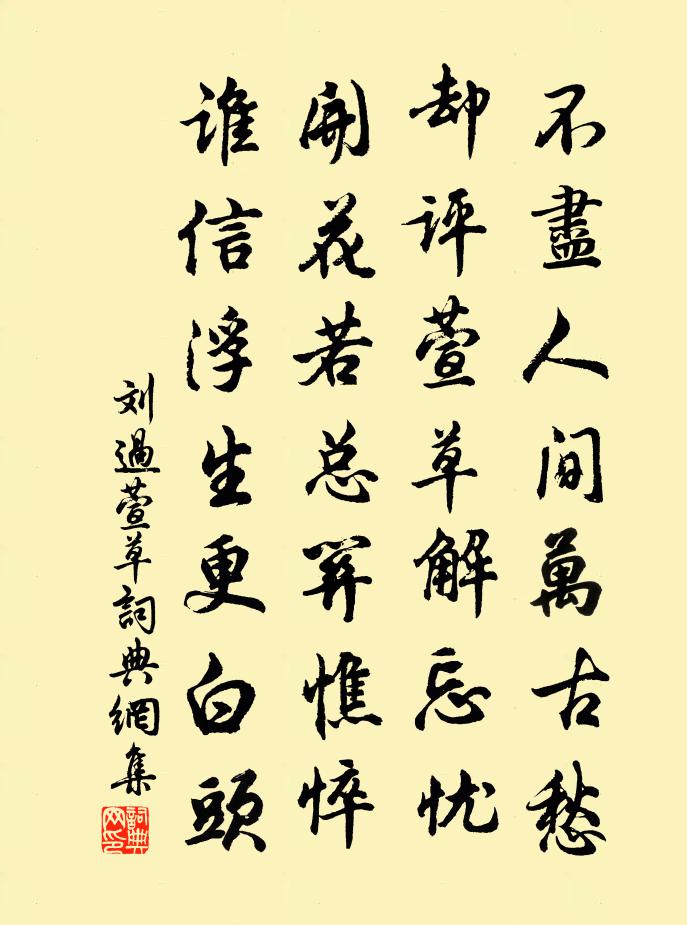 不盡人間萬古愁
却評萱草解忘忧
開花若总關憔悴
誰信浮生更白頭
刘過萱草詞典網集
詞典网印